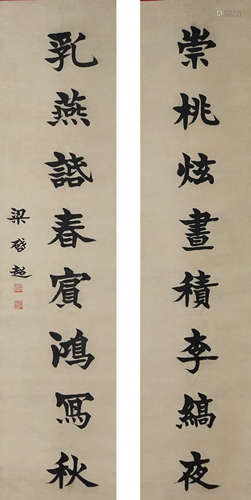 崇桃炫晝積李縞夜
乳燕諮春賓鴻寫秋
梁啟超